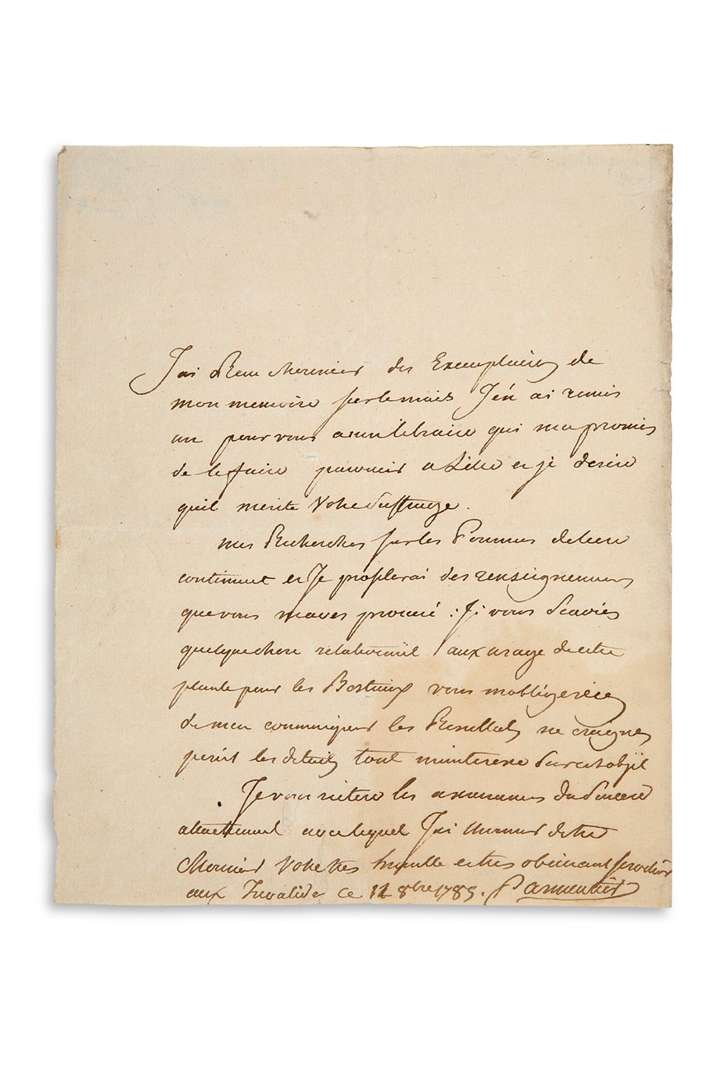 J'ai Recu Monsieur des Exemplaires de
mon memoire sur le mais J'en ai remis
un pour vous a un libraire qui ma promis
de le faire parvenir a Lille et je desire
quil merite Votre Suffrage.
mes Recherches sur les Pommes de terre
continuent et Je profiterai des renseignemens
que vous maves procuré : Si vous Scavies
quelque chose relativement aux usage de cette
plante pour les Bestiaux vous mobligeries
de men communiquer les Resultats ne craignes
point les details tout minteresse Sur cet objet
Je vous reitere les assurances du Sincere
attachement avec lequel J'ai lhonneur detre
Monsieur Votre tres humble et tres obeissant serviteur
aux Invalides ce 12 8bre 1785. Parmentier